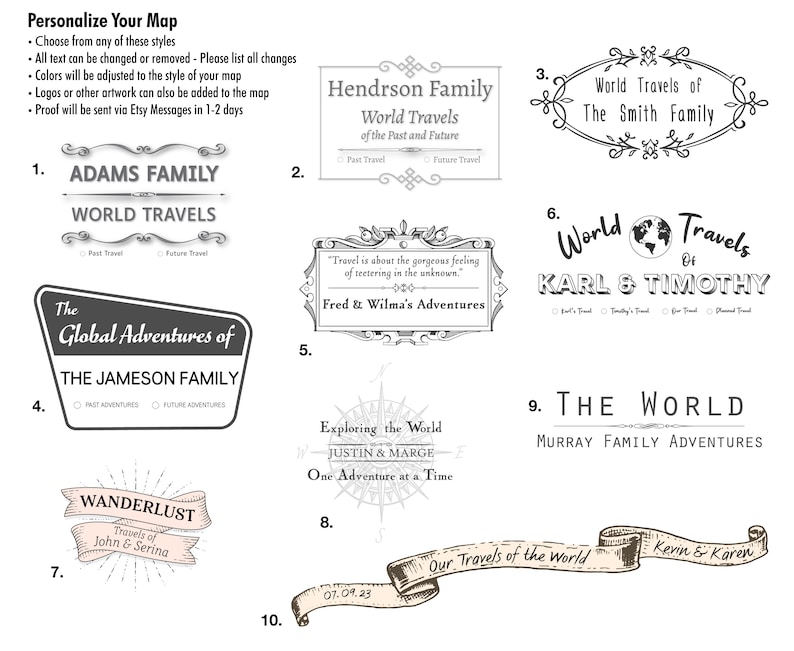 Personalize Your Map
• Choose from any of these styles
• All text can be changed or removed - Please list all changes
• Colors will be adjusted to the style of your map
• Logos or other artwork can also be added to the map
• Proof will be sent via Etsy Messages in 1-2 days
1.
ADAMS FAMILY
WORLD TRAVELS
Past Travel Future Travel
2.
Hendrson Family
World Travels
of the Past and Future
Past Travel Future Travel
3.
World Travels of
The Smith Family
4.
The
Global Adventures of
THE JAMESON FAMILY
PAST ADVENTURES FUTURE ADVENTURES
5.
"Travel is about the gorgeous feeling
of teetering in the unknown."
Fred & Wilma's Adventures
6.
World Travels
Of
KARL & TIMOTHY
Karl's Travel Timothy's Travel Our Travel Planned Travel
7.
WANDERLUST
Travels of
John & Serina
8.
N
Exploring the World
W JUSTIN & MARGE E
One Adventure at a Time
S
9.
THE WORLD
MURRAY FAMILY ADVENTURES
10.
07.09.23
Our Travels of the World
Kevin & Karen